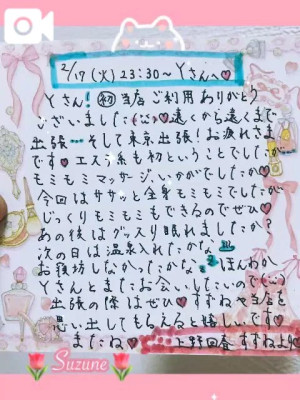 2/17(火)23:30～Yさんへ♥
Yさん！初当店ご利用ありがとう
ございました♥遠くから遠くまで
出張…そして東京出張！お疲れさま
です♥エステ系も初ということでしたが
モミモミマッサージ、いかがでしたか♥
今回はササッと全身モミモミでしたが
じっくりモミモミもできるのでぜひ♥
あの後はグッスリ眠れましたか？
次の日は温泉入れたかな♨
お寝坊しなかったかな ほんわか
Yさんとまたお会いしたいので
出張の際はぜひ♥すずねや当店を
思い出してもらえると嬉しいです♥
またね♥上野回春すずねより♥
Suzune